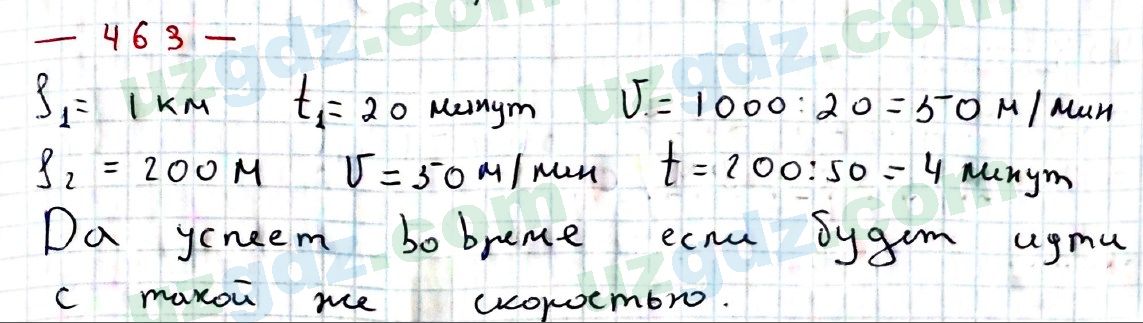 — 463 —
S₁ = 1 км t₁ = 20 минут V = 1000 : 20 = 50 м/мин
S₂ = 200 м V = 50 м/мин t = 200 : 50 = 4 минут
Да успеет во време если будет идти
с такой же скоростью.
uzgdz.com